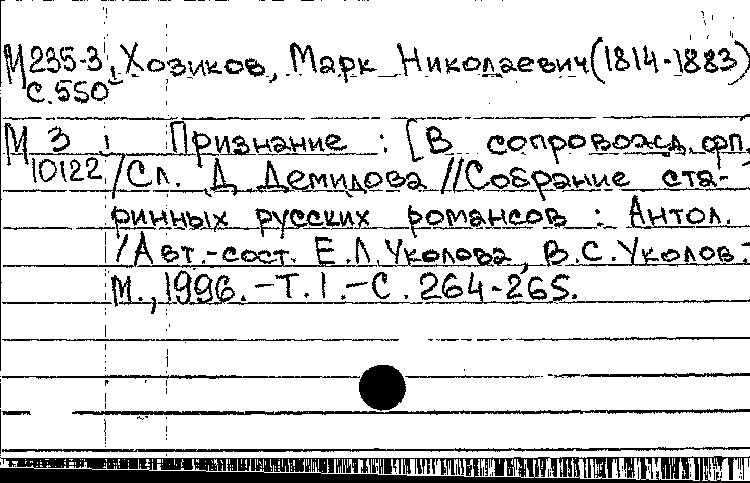 М 235-3 Хозиков, Марк Николаевич (1814-1883)
с. 550
М 3 Признание : [В сопровожд. фп.
10122 /Сл. Д. Демидова //Собрание ста-
ринных русских романсов : Антол.
/Авт.-сост. Е.Л.Уколова, В.С.Уколов.-
М., 1996.-Т.1.-С. 264-265.